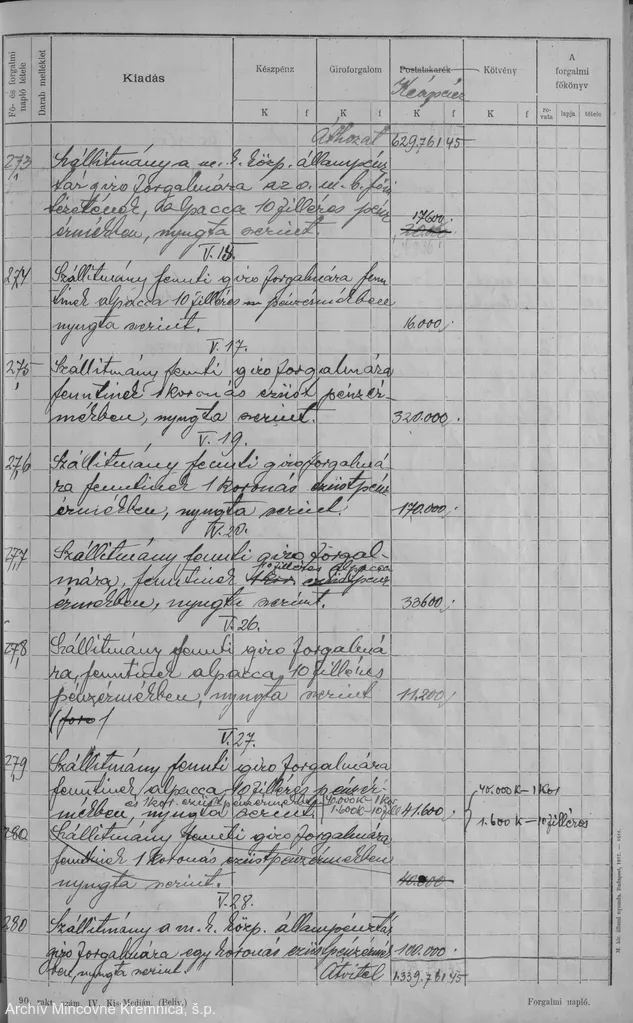 Fő- és forgalmi napló tétele
Darab melléklet
Kiadás
Készpénz
Giroforgalom
Postatakarék
Készpénz
Kötvény
A forgalmi főkönyv
K f K f K f K f rovata lapja tétele
Áthozat 629.761 45
273 Szállitmány a m. k. közp. állampénz
tár giro forgalmára az o. m. b. fiú
alpacca 10 filléres pénz
érmékben, nyugta szerint. 17600
V. 15.
274 Szállitmány fennti giro forgalmára fenn
tinek alpacca 10 filléres pénzérmékben
nyugta szerint. 16.000
V. 17.
275 Szállitmány fennti giro forgalmára
fenntinek 1 koronás ezüst pénzér-
mékben, nyugta szerint. 320.000
V. 19.
276 Szállitmány fennti giro forgalmá-
ra fenntinek 1 koronás ezüst pénz
érmékben, nyugta szerint. 170.000
V. 20.
277 Szállitmány fennti giro forgal-
mára, fenntinek 10 filléres alpacca pénz
érmékben, nyugta szerint. 33600
V. 26.
278 Szállitmány fennti giro forgalmá
ra, fenntinek alpacca 10 filléres
pénzérmékben, nyugta szerint 11.200
V. 27.
279 Szállitmány fennti giro forgalmára
fenntinek alpacca 10 filléres pénzér- 40.000 K – 1 Kor
és 1 kor. ezüst pénzérmékben 40.000 K – 1 Kor
mékben, nyugta szerint 1.600 K – 10 fill 41.600 1.600 K – 10 filléres
280 Szállitmány fennti giro forgalmára
fenntinek 1 koronás ezüstpénzérmékben
nyugta szerint. 40.000
V. 28.
280 Szállitmány a m. k. közp. állampénztár
giro forgalmára egy koronás ezüstpénzérmék 100.000
ben, nyugta szerint Átvitel 1.339.761 45
90. rakt. szám. IV. Kis Medián. (Beliv.)
Forgalmi napló.
M. kir. állami nyomda. Budapest, 1911.
Archív Mincovne Kremnica, š.p.